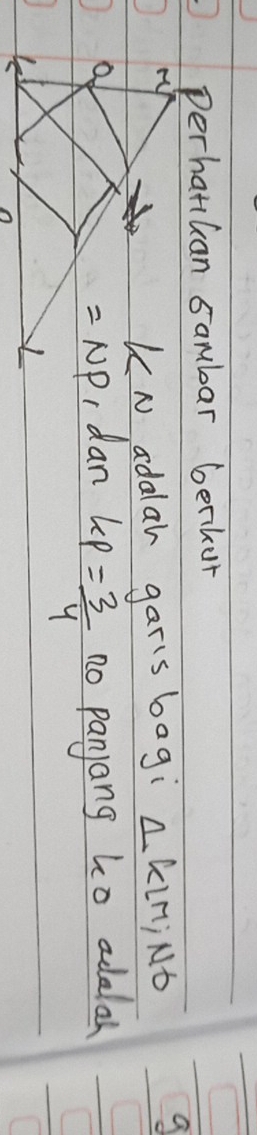 Perhatikan Gambar berikut
M
O
K
N
L
P
KN adalah garis bagi Δ KLM; NO
= NP, dan kp = 3/4 no panjang ko adalah